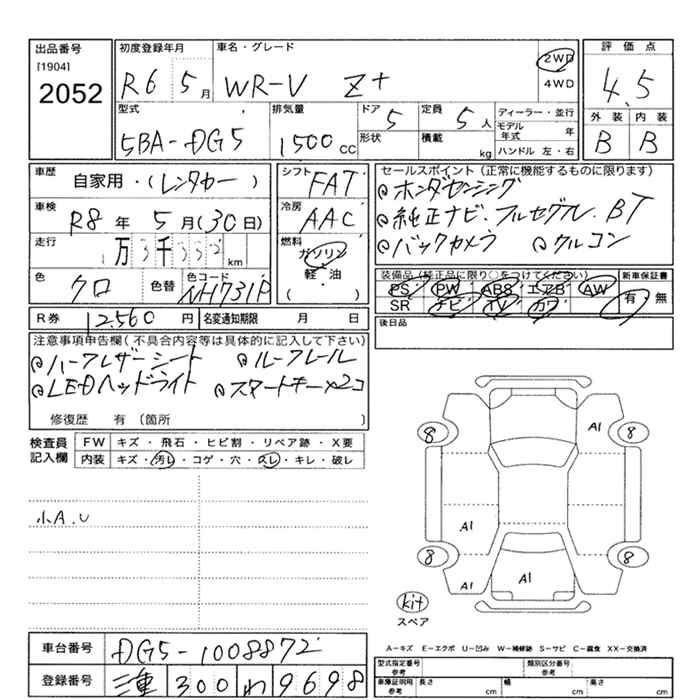 出品番号 初度登録年月 車名・グレード 2WD 4WD 評価点
[1904] 2052 R6 5月 WR-V Z+ 4.5
型式 排気量 ドア 定員 ディーラー・並行 外装 内装
5BA-DG5 1500cc 5 5人 モデル年式 年 B B
形状 積載 kg ハンドル 左・右
車歴 自家用・(レンタカー) シフト FAT セールスポイント(正常に機能するものに限ります)
ホンダセンシング
車検 R8年 5月(30日) 冷房 AAC 純正ナビ.フルセグTV.BT
走行 1万3千352km 燃料 ガソリン 軽・油 (・) バックカメラ クルコン
色 クロ 色替 色コード NH731P 装備品(純正品に限り○をつけてください) 新車保証書
PS PW ABS エアB AW 有・無
SR ナビ TV カワ
R券 12,560円 名変通知期限 月 日 後日品
注意事項申告欄(不具合内容等は具体的に記入して下さい)
ハーフレザーシート ルーフレール
LEDヘッドライト スマートキー×2コ
修復歴 有 〔箇所 〕
検査員記入欄 FW キズ・飛石・ヒビ割・リペア跡・X要
内装 キズ・汚レ・コゲ・穴・スレ・キレ・破レ
小A.U
8 A1 8
A1
8 A1 A1 8
kit
スペア
A-キズ E-エクボ U-凹み W-補修跡 S-サビ C-腐食 XX-交換済
車台番号 DG5-1008872
型式指定番号 参考 類別区分番号 参考
登録番号 三重 300 わ 9698
車庫証明用 参考 長さ cm 幅 cm 高さ cm